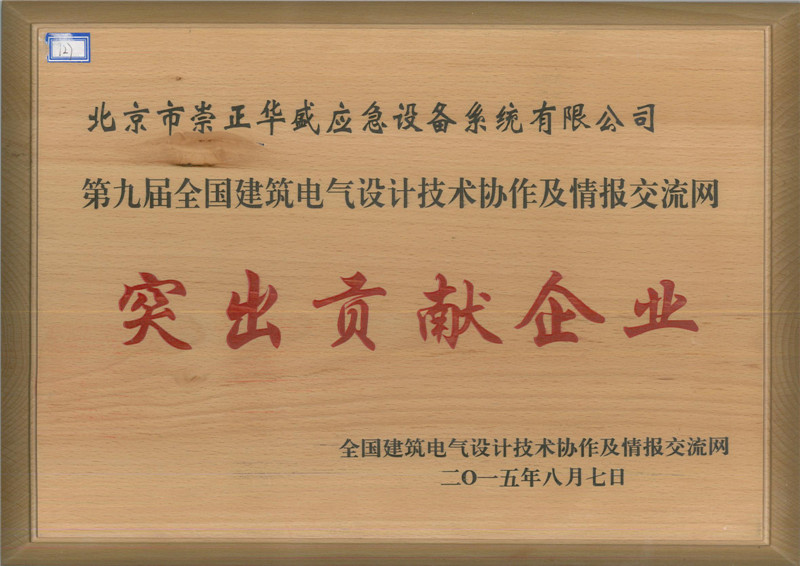 北京市崇正华盛应急设备系统有限公司
第九届全国建筑电气设计技术协作及情报交流网
突出贡献企业
全国建筑电气设计技术协作及情报交流网
二〇一五年八月七日